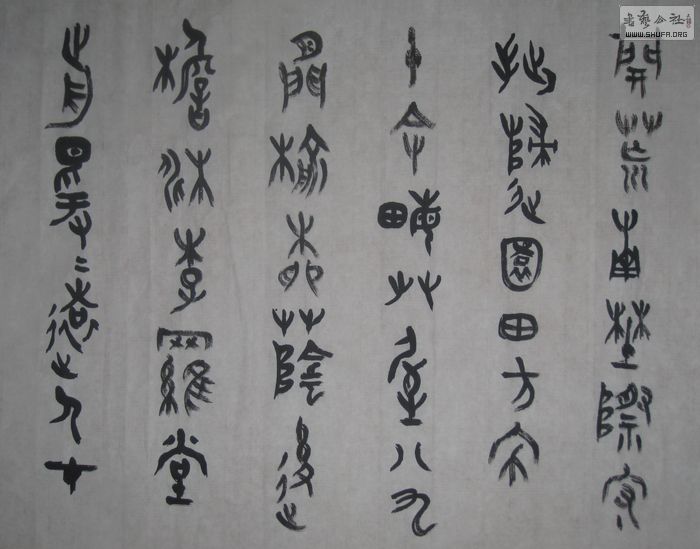 書藝公社
WWW.SHUFA.ORG
開荒南埜際守
拙歸園田方宅
十余畮艸屋八九
間榆柳蔭後
檐桃李羅堂
歬